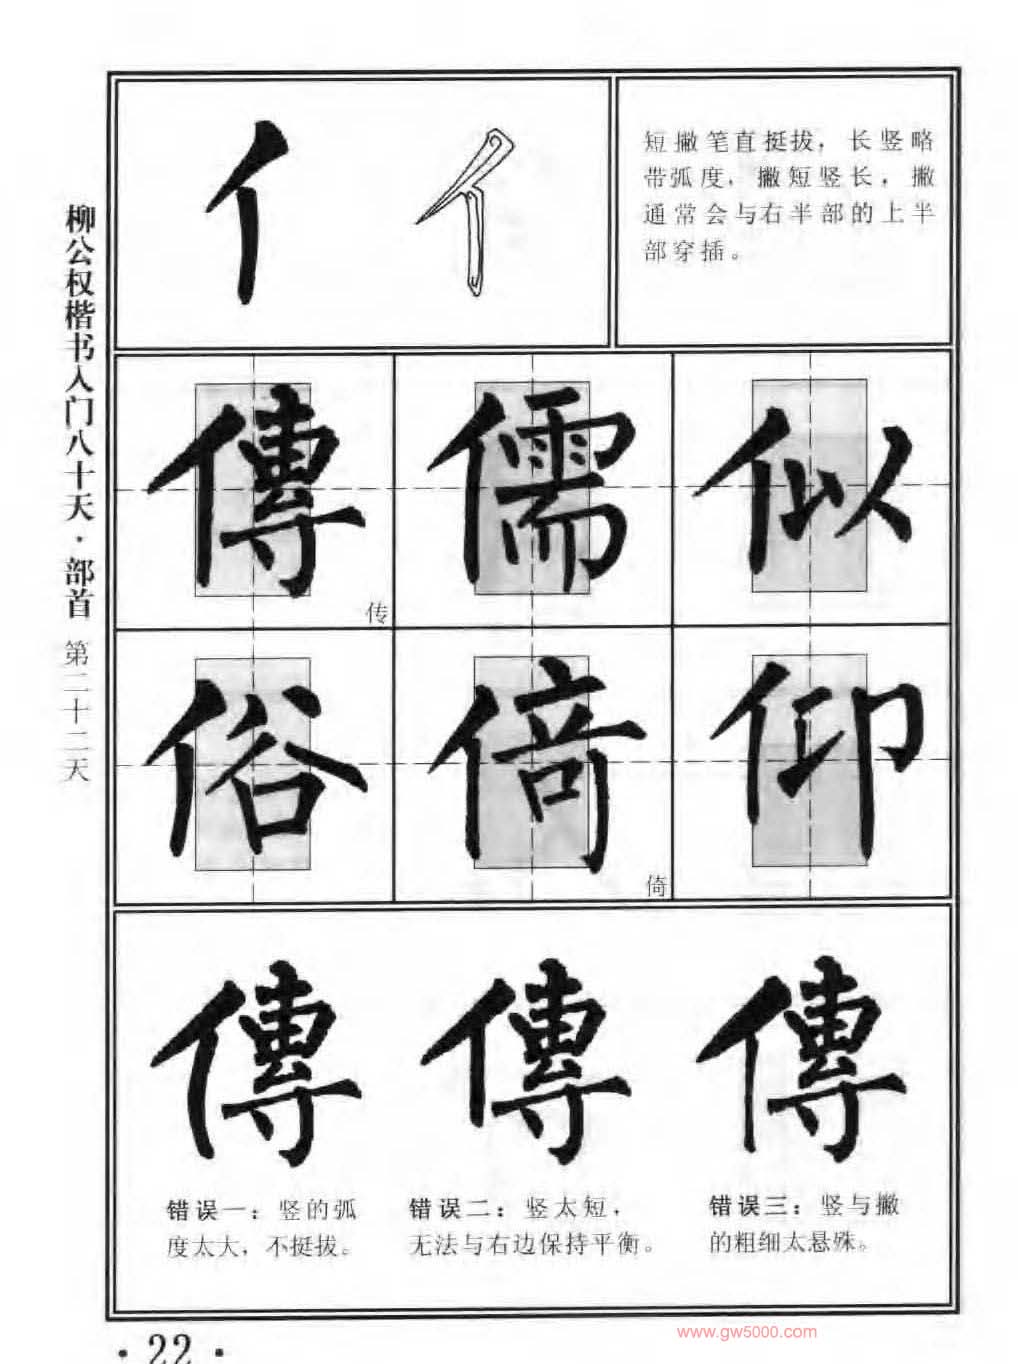 柳公权楷书入门八十天·部首 第二十二天
亻
短撇笔直挺拔，长竖略
带弧度，撇短竖长，撇
通常会与右半部的上半
部穿插。
傳 儒 似
传
俗 倚 仰
倚
傳 傳 傳
错误一：竖的弧
度太大，不挺拔。
错误二：竖太短，
无法与右边保持平衡。
错误三：竖与撇
的粗细太悬殊。
www.gw5000.com
·22·